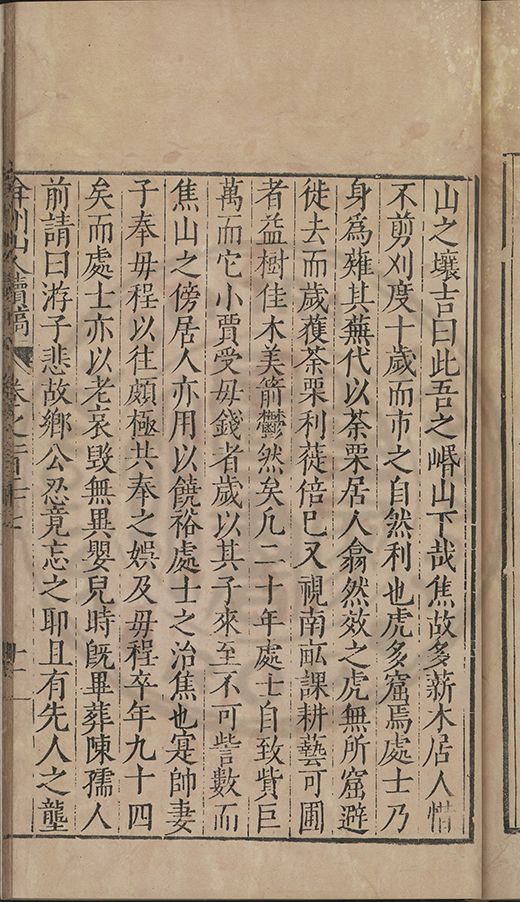 山之壤吉曰此吾之㟭山下哉焦故多薪木居人惜
不剪刈度十歲而市之自然利也虎多窟焉處士乃
身爲薙其蕪代以荼栗居人翕然效之虎無所窟避
徙去而歲獲荼栗利蓰倍巳又視南畝課耕藝可圃
者益樹佳木美箭鬱然矣凢二十年處士自致貲巨
萬而它小賈受毋錢者歲以其子來至不可訾數而
焦山之傍居人亦用以饒裕處士之治焦也寔帥妻
子奉毋程以徃頗極共奉之娯及毋程卒年九十四
矣而處士亦以老哀毀無異嬰兒時旣畢葬陳孺人
前請曰游子悲故鄉公忍竟忘之耶且有先人之壟
弇州山人續稿 卷之一百二十七 十一